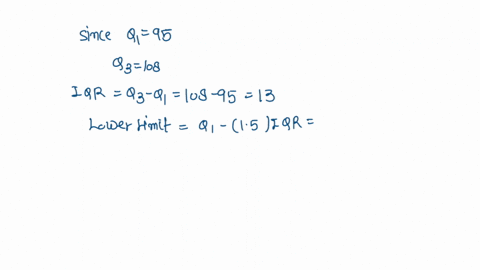 since Q₁=95
Q₃=108
IQR = Q₃-Q₁ = 108-95 = 13
Lower limit = Q₁ - (1.5)IQR =